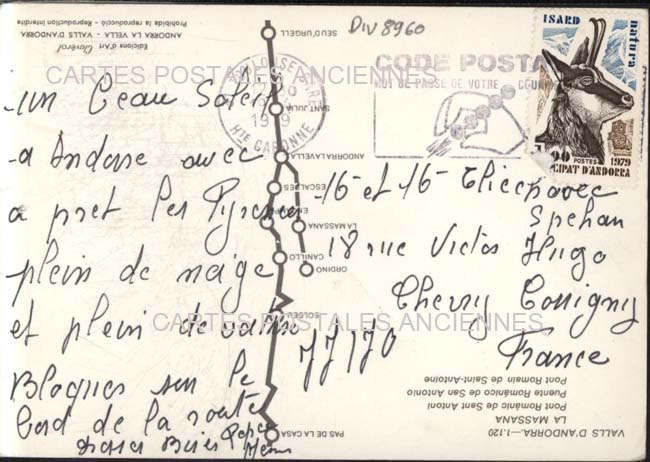 DIV 8960
ISARD
natura
1979
POSTES
CIPAT D'ANDORRA
CODE POSTA
MOT DE PASSE DE VOTRE COURR
1979
HTE GARONNE
CARTES POSTALES ANCIENNES
un Beau Soleil
a Andore avec
a pret les Pyrenes
plein de naige
et plein de
Bloques sur le
bord de la route
Baies Pepe
Meme
16 et 16
18 rue Victor Hugo
77170
France
CARTES POSTALES ANCIENNES
SEU D'URGELL
SANT JULIA
ANDORRA LA VELLA
ESCALDES
LA MASSANA
CANILLO
ORDINO
SOLDEU
PAS DE LA CASA
VALLS D'ANDORRA.—1.120
LA MASSANA
Pont Romànic de Sant Antoni
Puente Románico de San Antonio
Pont Romain de Saint-Antoine
Edicions d'Art Claverol
ANDORRA LA VELLA - VALLS D'ANDORRA
Prohibida la reproducció - Reproduction interdite